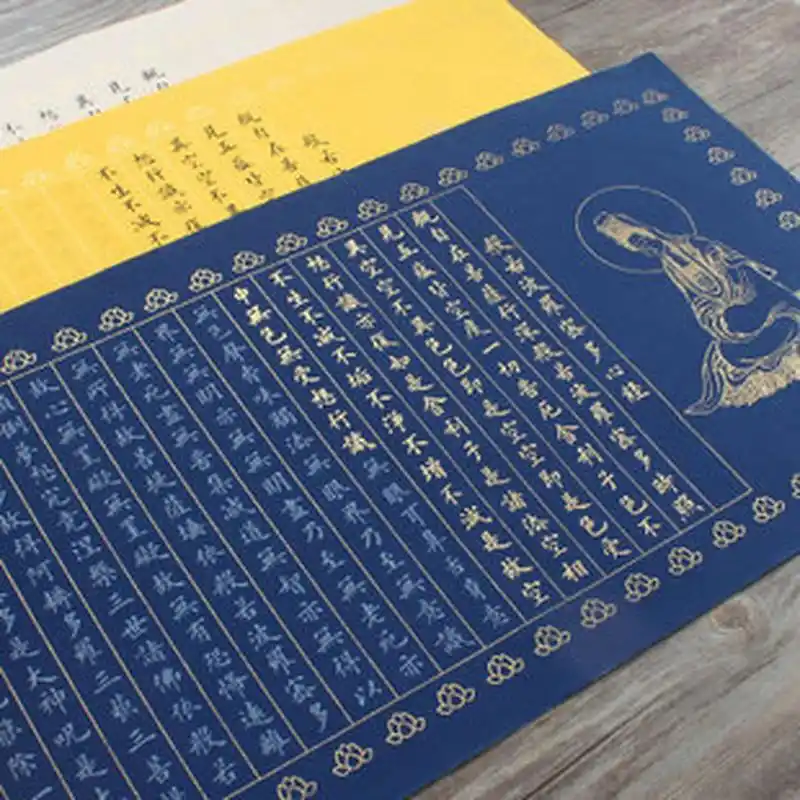 般若波羅蜜多心経
觀自在菩薩行深般若波羅蜜多時照
見五蘊皆空度一切苦厄舍利子色不
異空空不異色色即是空空即是色受
想行識亦復如是舍利子是諸法空相
不生不滅不垢不淨不增不減是故空
中無色無受想行識無眼耳鼻舌身意
無色聲香味觸法無眼界乃至無意識
界無無明亦無無明盡乃至無老死亦
無老死盡無苦集滅道無智亦無得以
無所得故菩提薩埵依般若波羅蜜多
故心無罣礙無罣礙故無有恐怖遠離
倒夢想究竟涅槃三世諸佛依般若
故得阿耨多羅三藐三菩
多是大神呪是
除一
般若
觀自在菩
見五蘊皆
異空空不
想行識亦
不生不滅不
觀
見
異
想
不